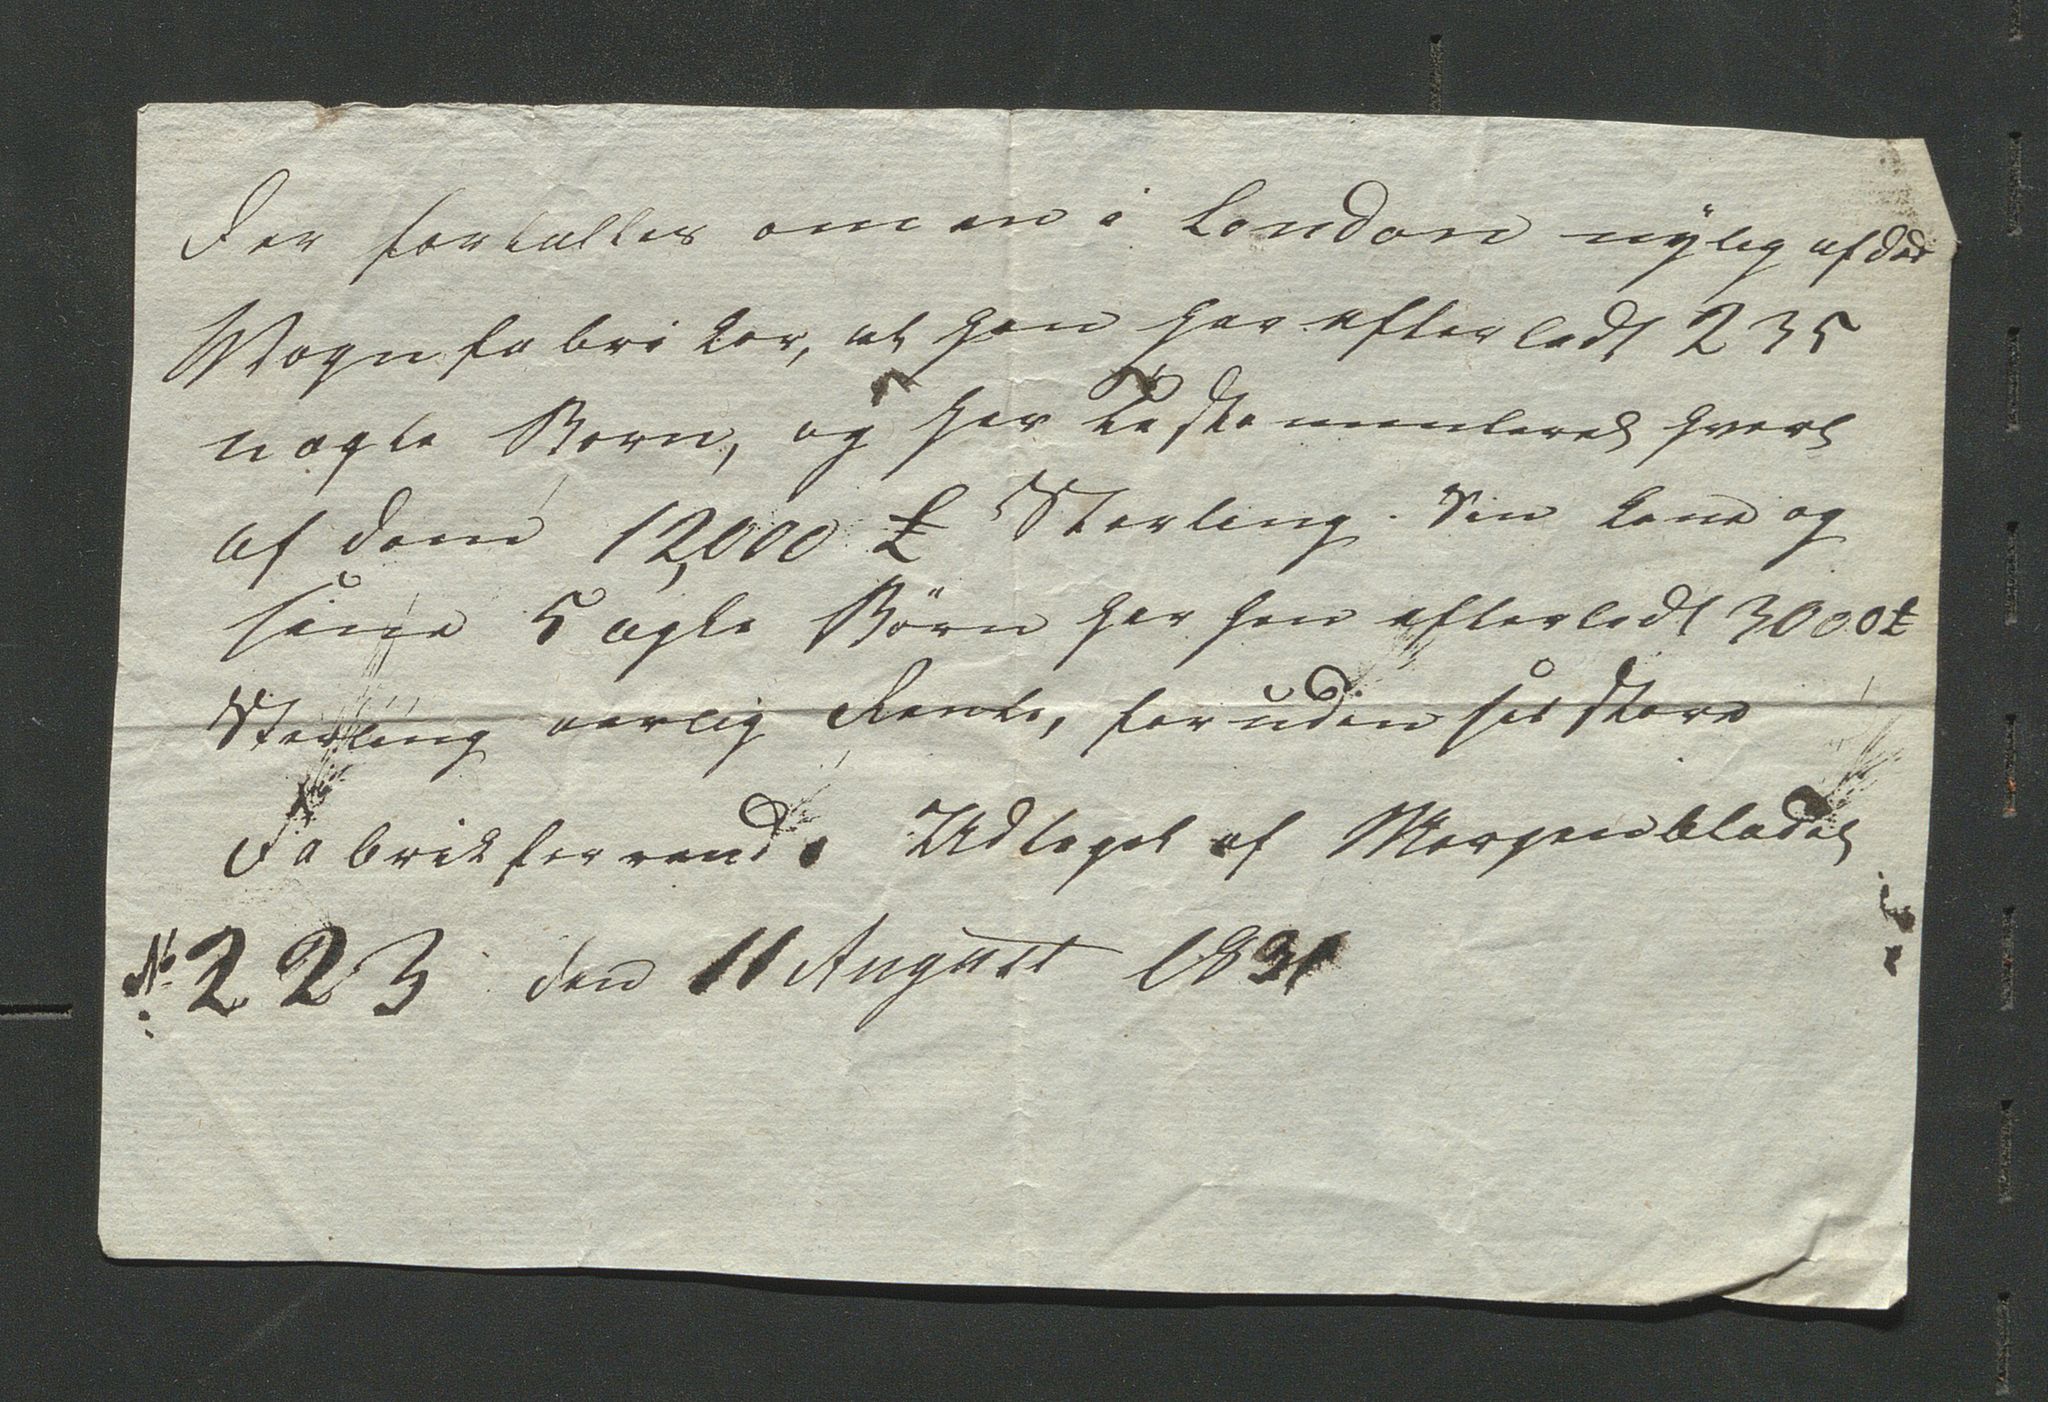 Der fortælles om en i London nylig afdød
Wognfabriker, at han har efterladt 235
uægte Børn, og har testamenteret hvert
af dem 12,000 £ Sterling. Sin Kone og
sine 5 ægte Børn har han efterladt 3000 £
Sterling aarlig Rente, foruden sit store
Fabrikforraad. Udtoget af Morgenbladet
No 223 den 11 August 1831